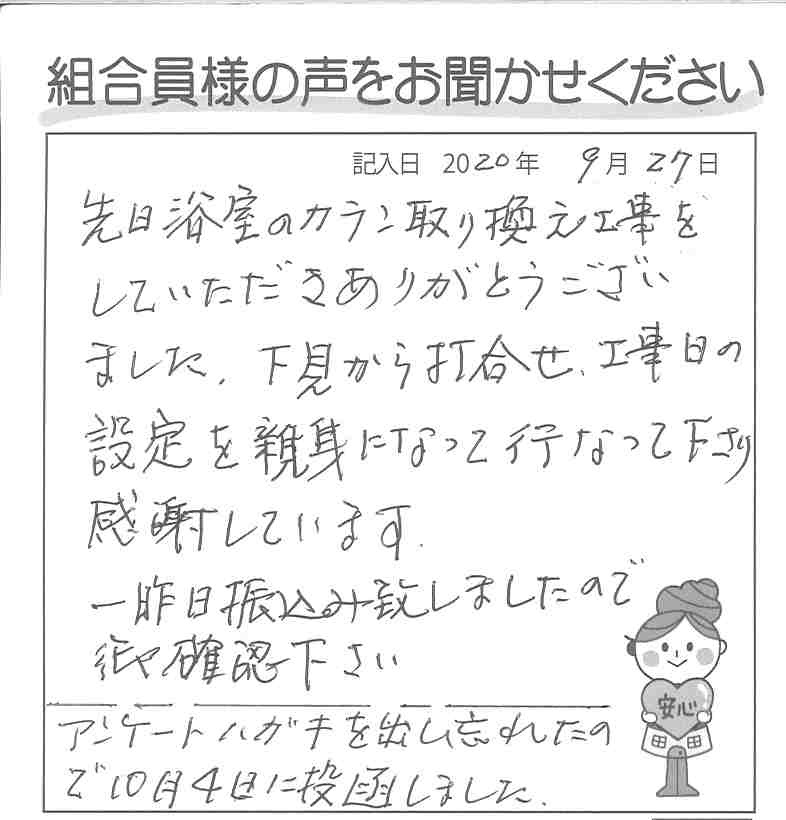 組合員様の声をお聞かせください
記入日 2020年 9月27日
先日浴室のカラン取り換え工事を
していただきありがとうござい
ました. 下見から打合せ、工事日の
設定を親身になって行なって下さり
感謝しています.
一昨日振込み致しましたので
確認下さい
安心
アンケートハガキを出し忘れたの
で10月4日に投函しました.